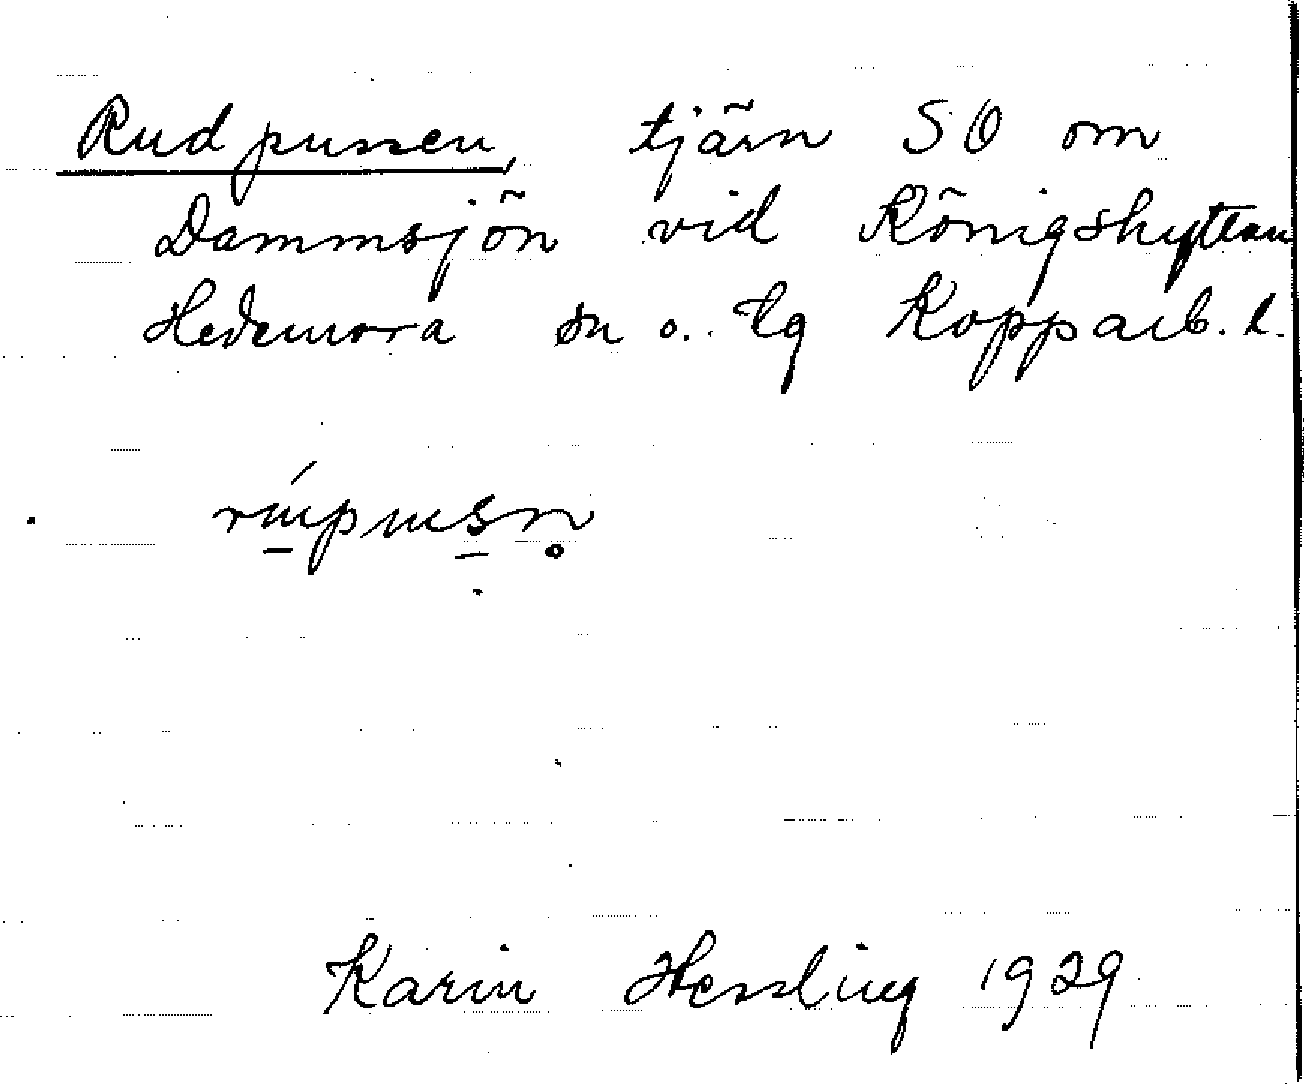 Rudpussen, tjärn SO om
Dammsjön vid Königshyttan
Hedemora sn o. tg Kopparb. l.
Karin Hessling 1929